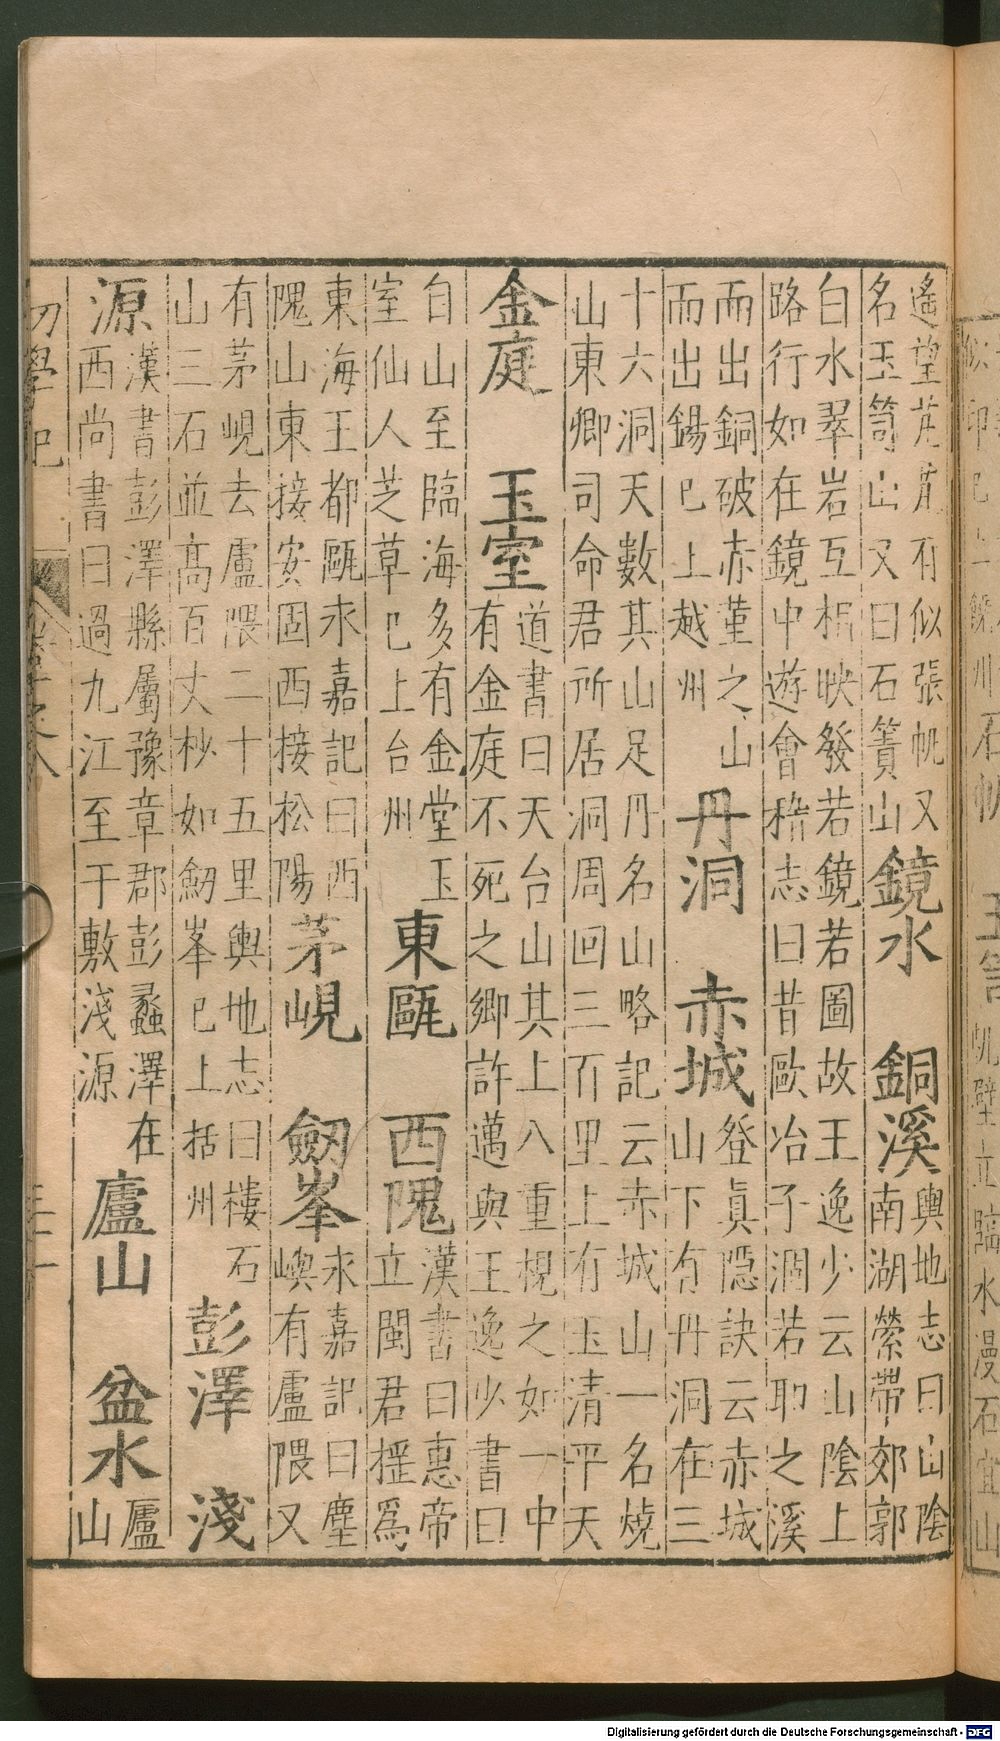 遙望芃芃有似張帆又
名玉笥山又曰石簣山
鏡水　銅溪
輿地志曰山陰
南湖縈帶郊郭
白水翠岩互相映發若鏡若圖故王逸少云山陰上
路行如在鏡中遊會稽志曰昔歐冶子涸若耶之溪
而出銅破赤堇之山
而出錫已上越州
丹洞　赤城
登眞隱訣云赤城
山下有丹洞在三
十六洞天數其山足丹名山略記云赤城山一名燒
山東卿司命君所居洞周回三百里上有玉清平天
金庭　玉室
道書曰天台山其上八重視之如一中
有金庭不死之鄉許邁與王逸少書曰
自山至臨海多有金堂玉
室仙人芝草已上台州
東甌　西隗
漢書曰惠帝
立閩君搖爲
東海王都甌永嘉記曰西
隗山東接安固西接松陽
茅峴　劒峯
永嘉記曰塵
嶼有盧隈又
有茅峴去盧隈二十五里輿地志曰樓石
山三石並高百丈杪如劒峯已上括州
彭澤　淺
源
漢書彭澤縣屬豫章郡彭蠡澤在
西尚書曰過九江至于敷淺源
廬山　盆水
廬
山
初學記
Digitalisierung gefördert durch die Deutsche Forschungsgemeinschaft - DFG